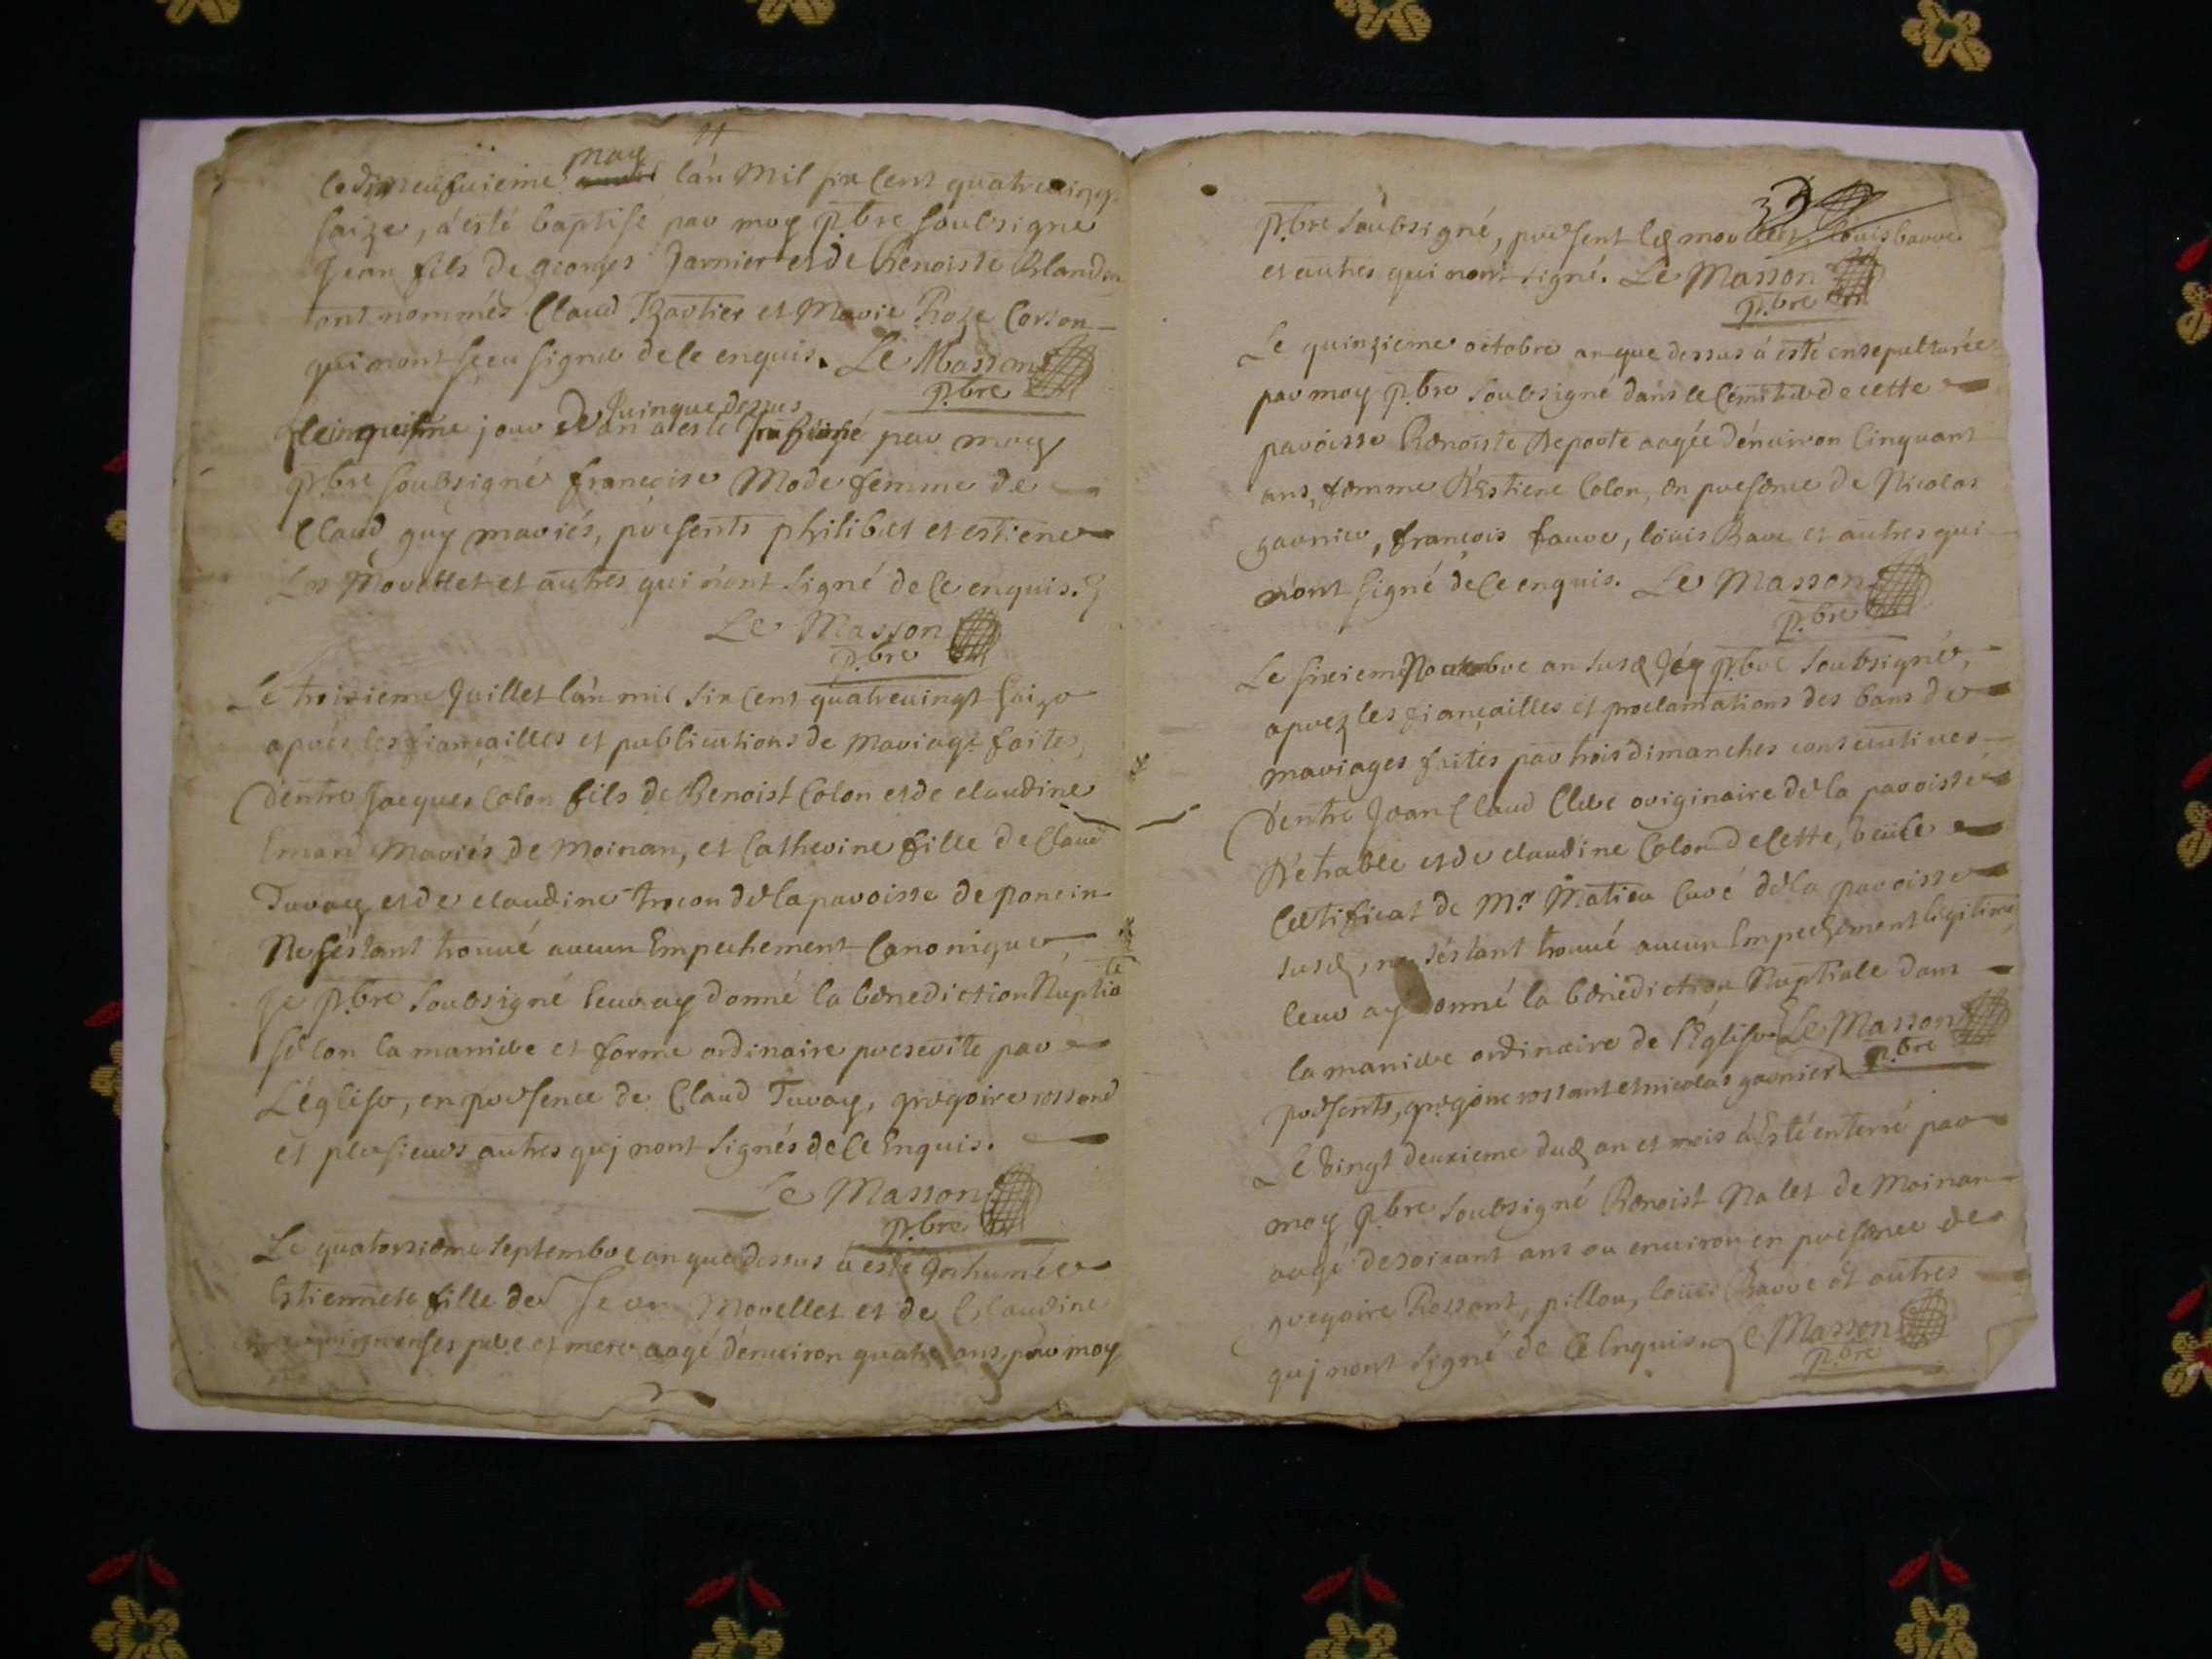 may
le dixneufuieme l'an mil six cent quatreving
saize, a'esté baptisé par moy p.bre soubsigné
Jean fils de georges Jarnier et de Benoiste Blandin
ont nommés Claud Bavtier et Marie Roze Corson
qui n'ont sçeu signer de ce enquis. Le Masson
p.bre
Juin que dessus
jour an a esté par moy
p.bre soubsigné françoise Mode femme de
Claud guy mariés, présents philibet et estiene
Les Movellet et autres qui n'ont signé de ce enquis.
Le Masson
p.bre
Le troisieme Juillet l'an mil six cent quatreuingt saize
aprés les fiançailles et publications de mariage faites,
D'entre Jacques Colon fils de Benoist Colon et de claudine
Emard mariés de moinan, et Catherine fille de Claud
Tuvay et de claudine trocon de la paroisse de poncin
Ne s'éstant trouvé aucun Empechement Canonique,
Je p.bre soubsigné leur ay donné la benediction Nuptiale
selon la maniere et forme ordinaire prescrite par
L'église, en présence de Claud Tuvay, gregoire rossand
et plusieurs autres quj n'ont signés de ce Enquis.
Le Masson
p.bre
Le quatorsieme septembre an que dessus a esté Inhumée
Estiennete fille de Jean Movellet et de Claudine
ses pere et mere aagé d'enuiron quatre ans, par moy
p.bre soubsigné, présent les movellet, Louis bavve
et autres qui n'ont signé. Le Masson
p.bre
Le quinzieme octobre an que dessus a esté ensepulturée
par moy p.bre soubsigné dans le Cemitiere de cette
paroisse Benoiste Deporte aagée d'enuiron Cinquant
ans, femme d'Estiene Colon, en presence de Nicolas
garnier, françois favre, louis Bave et autres qui
n'ont signé de ce enquis. Le Masson
p.bre
Le sixieme Nouembre an susd Jéy p.bre soubsigné,
aprez les fiançailles et proclamations des bans de
mariages faites par trois dimanches consecutives
D'entre Jean Claud Clere originaire de la paroisse
D'etrable et de claudine Colon de Cette, veüe le
Certificat de Mr Matieu Curé de la paroisse
susd, ne s'éstant trouué aucun Empechement légitime
leur ay donné la bénédiction Nuptiale dans
la maniere ordinaire de l'Eglise. Le Masson
présents, gregoire rossant et nicolas garnier p.bre
Le vingt deuxieme dud an et mois a Esté enterré par
moy p.bre soubsigné Benoist Nalet de Moinan
aagé de soixant ans ou enuiron en présence de
gregoire Rossant, pillon, loüis Bavve et autres
quj n'ont signé de Ce Enquis. Le Masson
p.bre